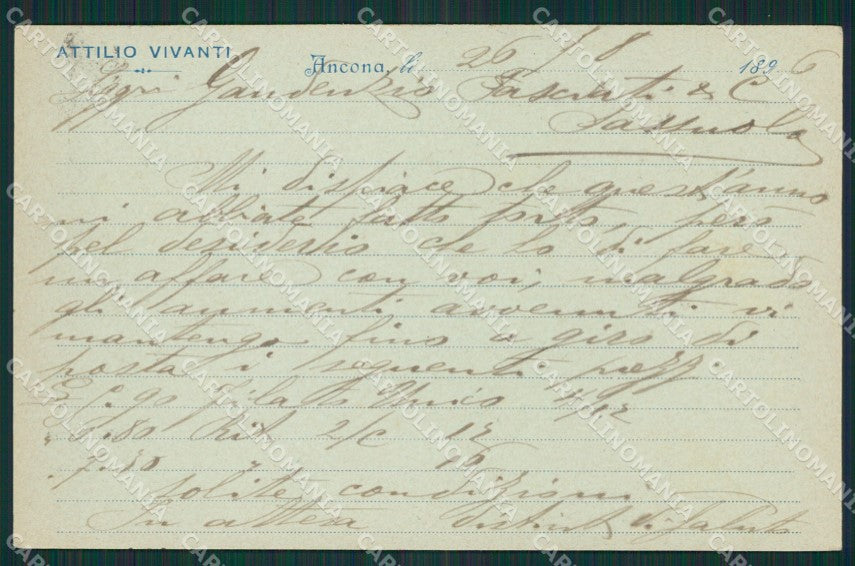 ATTILIO VIVANTI
Ancona, li 26 / 8 1896
Sigri Gaudenzio & C
Sassuolo
Mi dispiace che quest'anno
mi abbiate fatto torto, però
pel desiderio che ho di fare
un affare con voi, malgrado
gli aumenti avvenuti vi
mantengo fino a giro di
posta i seguenti prezzi
90 filato Unico
80 Rit 2/c 12
solite condizioni
In attesa distint di Saluto
CARTOLINOMANIA